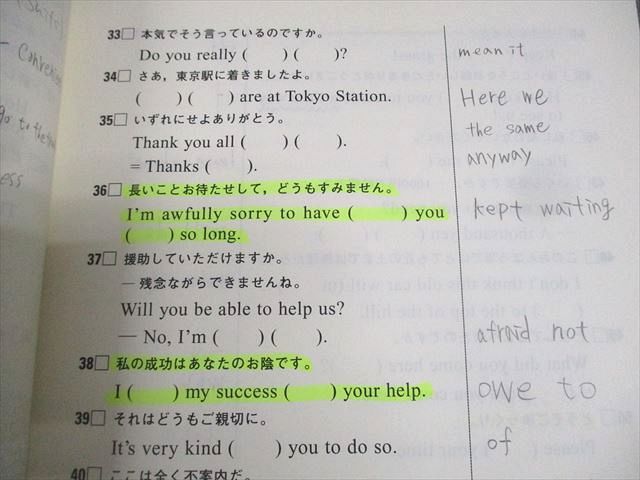 33 本気でそう言っているのですか。
Do you really ( ) ( )? mean it
34 さあ，東京駅に着きましたよ。
( ) ( ) are at Tokyo Station. Here we
35 いずれにせよありがとう。
Thank you all ( ) ( ). the same
= Thanks ( ). anyway
36 長いことお待たせして，どうもすみません。
I'm awfully sorry to have ( ) you kept waiting
( ) so long.
37 援助していただけますか。
— 残念ながらできませんね。
Will you be able to help us?
— No, I'm ( ) ( ). afraid not
38 私の成功はあなたのお陰です。
I ( ) my success ( ) your help. owe to
39 それはどうもご親切に。
It's very kind ( ) you to do so. of
40 ここは全く不案内だ。